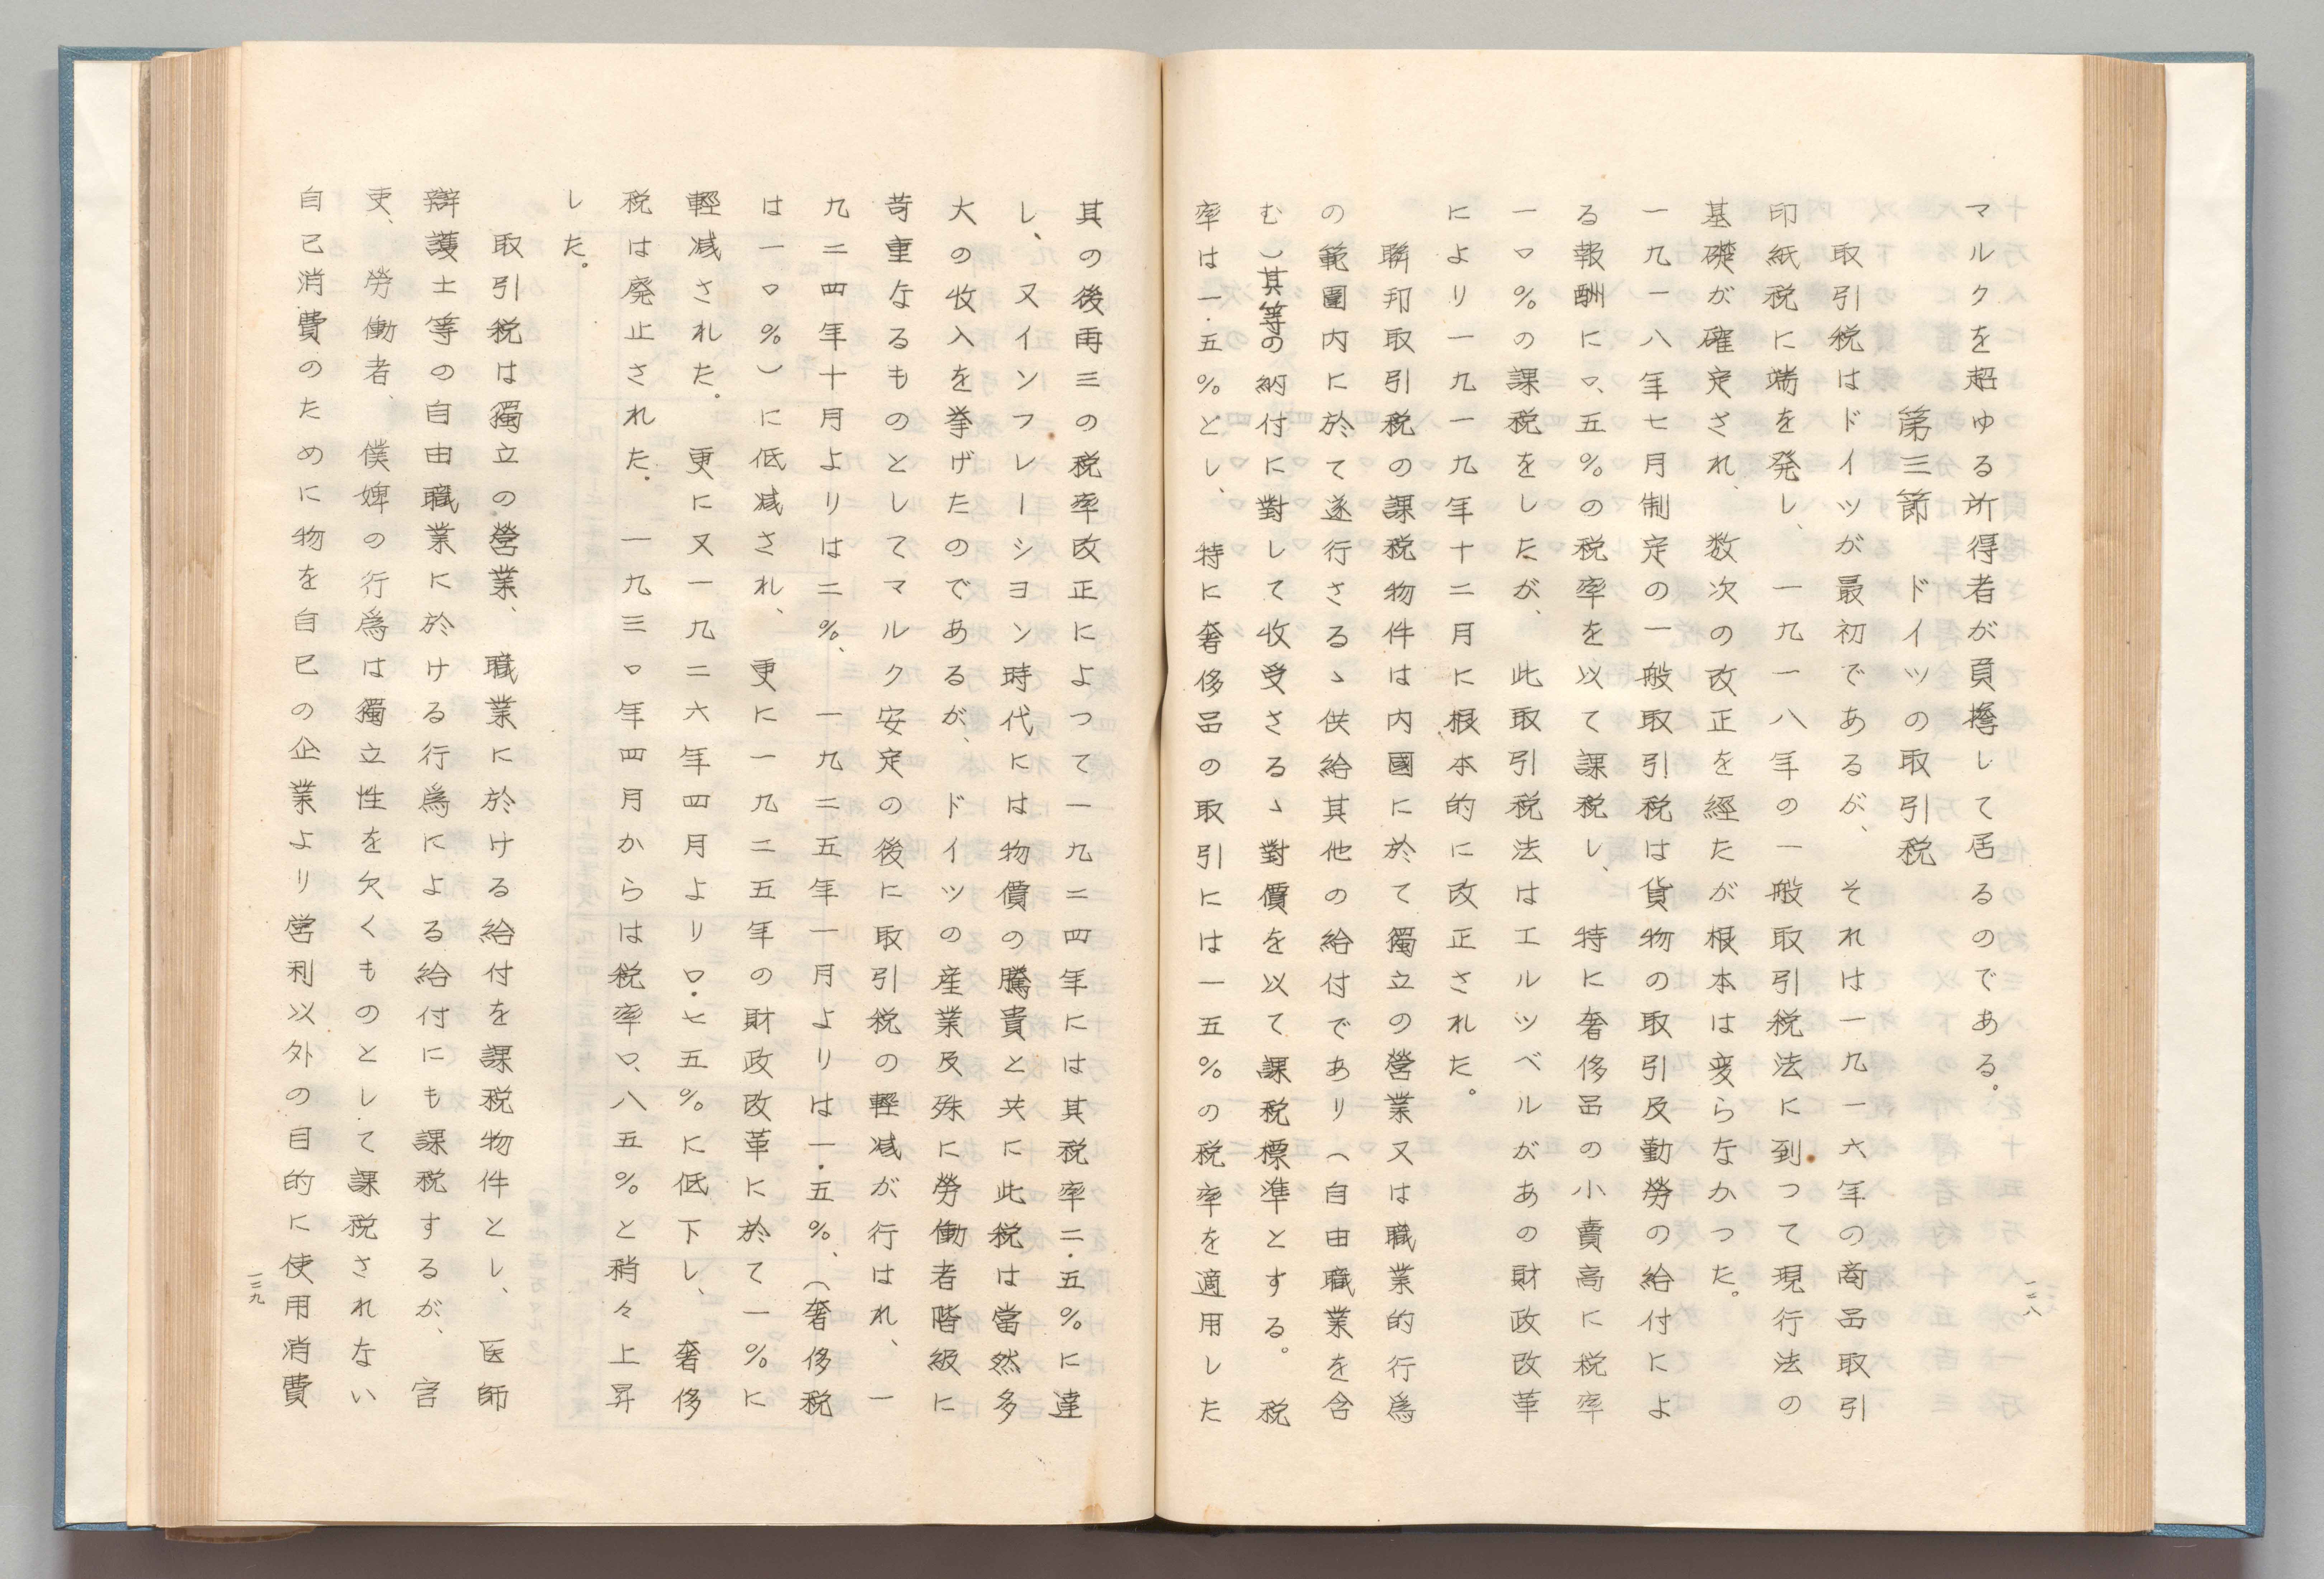 マルクを超ゆる所得者が負擔して居るのである。
第三節　ドイツの取引税
取引税はドイツが最初であるが、それは一九一六年の商品取引
印紙税に端を発し、一九一八年の一般取引税法に到つて現行法の
基礎が確定され、数次の改正を經たが根本は変らなかつた。
一九一八年七月制定の一般取引税は貨物の取引及勤勞の給付によ
る報酬に〇、五％の税率を以て課税し、特に奢侈品の小賣高に税率
一〇％の課税をしたが、此取引税法はエルツベルがあの財政改革
により一九一九年十二月に根本的に改正された。
聯邦取引税の課税物件は内國に於て獨立の營業又は職業的行爲
の範圍内に於て遂行さるゝ供給其他の給付であり（自由職業を含
む）其等の納付に對して收受さるゝ對價を以て課税標準とする。税
率は一.五％とし、特に奢侈品の取引には一五％の税率を適用した
一二八
其の後再三の税率改正によつて一九二四年には其税率二.五％に達
し、又インフレーシヨン時代には物價の騰貴と共に此税は當然多
大の收入を挙げたのであるが、ドイツの産業及殊に勞働者階級に
苛重なるものとしてマルク安定の後に取引税の輕減が行はれ、一
九二四年十月よりは二％、一九二五年一月よりは一.五％、（奢侈税
は一〇％）に低減され、更に一九二五年の財政改革に於て一％に
輕減された。更に又一九二六年四月より〇.七五％に低下し、奢侈
税は廃止された.一九三〇年四月からは税率〇、八五％と稍々上昇
した。
取引税は獨立の營業、職業に於ける給付を課税物件とし、医師
辯護士等の自由職業に於ける行爲による給付にも課税するが、官
吏、勞働者、僕婢の行爲は獨立性を欠くものとして課税されない
自己消費のために物を自己の企業より営利以外の目的に使用消費
一二九